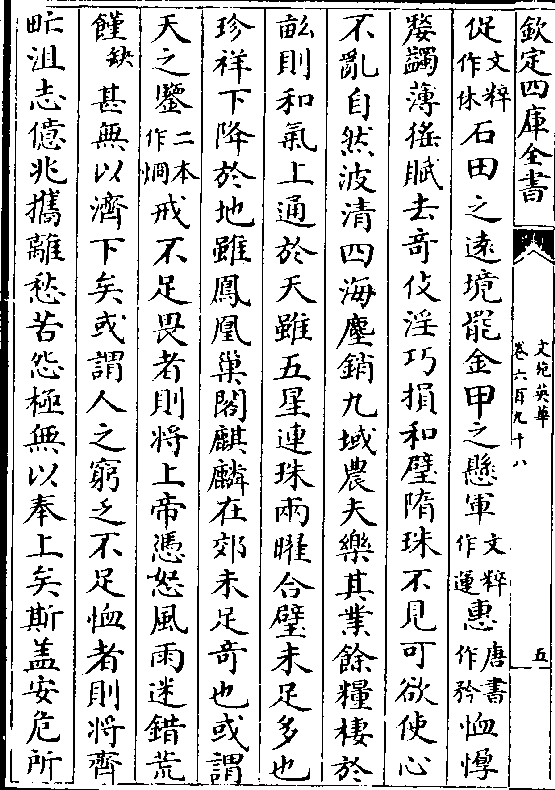 欽定四庫全書
文苑英華
卷六百九十八
五
促文粹作休石田之遠境罷金甲之懸軍文粹作運惠唐書作矜恤惸
嫠蠲薄徭賦去奇伎淫巧損和璧隋珠不見可欲使心
不亂自然波清四海塵銷九域農夫樂其業餘糧棲於
畝則和氣上通於天雖五星連珠兩曜合璧未足多也
珍祥下降於地雖鳳凰巢閣麒麟在郊未足奇也或謂
天之鑒二本作憪戒不足畏者則將上帝憑怒風雨迷錯荒
饉缺甚無以濟下矣或謂人之窮乏不足恤者則將齊
甿沮志億兆攜離愁苦怨極無以奉上矣斯蓋安危所